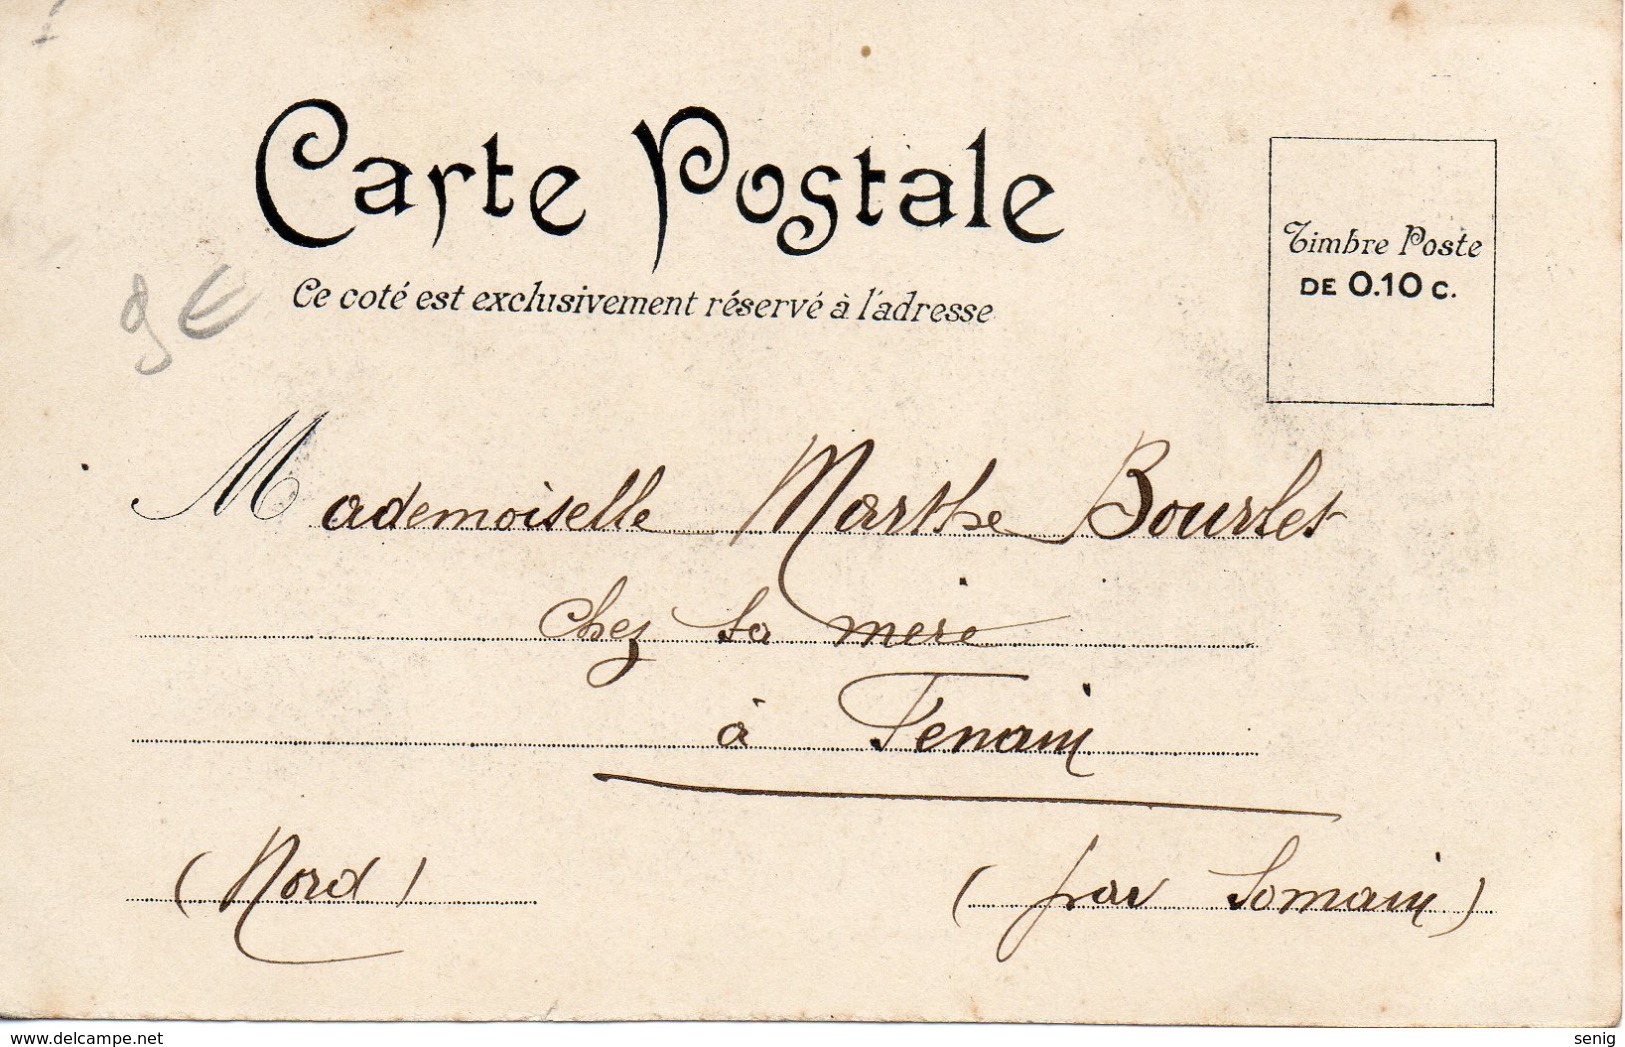 Carte Postale
Ce coté est exclusivement réservé à l'adresse
Timbre Poste
DE 0.10 c.
9€
Mademoiselle Marthe Bourlet
chez sa mère
à Fenain
(Nord)
(par Somain)
delcampe.net
senig